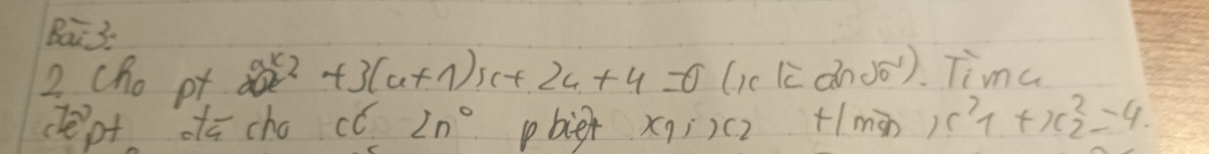 Bài 3:
2 Cho pt ax² + 3(a+1)x + 2a + 4 = 0 (x là ẩn số). Tìm a
để pt đã cho có 2n° p biệt x1; x2 t/mãn x²1 + x²2 = 4.